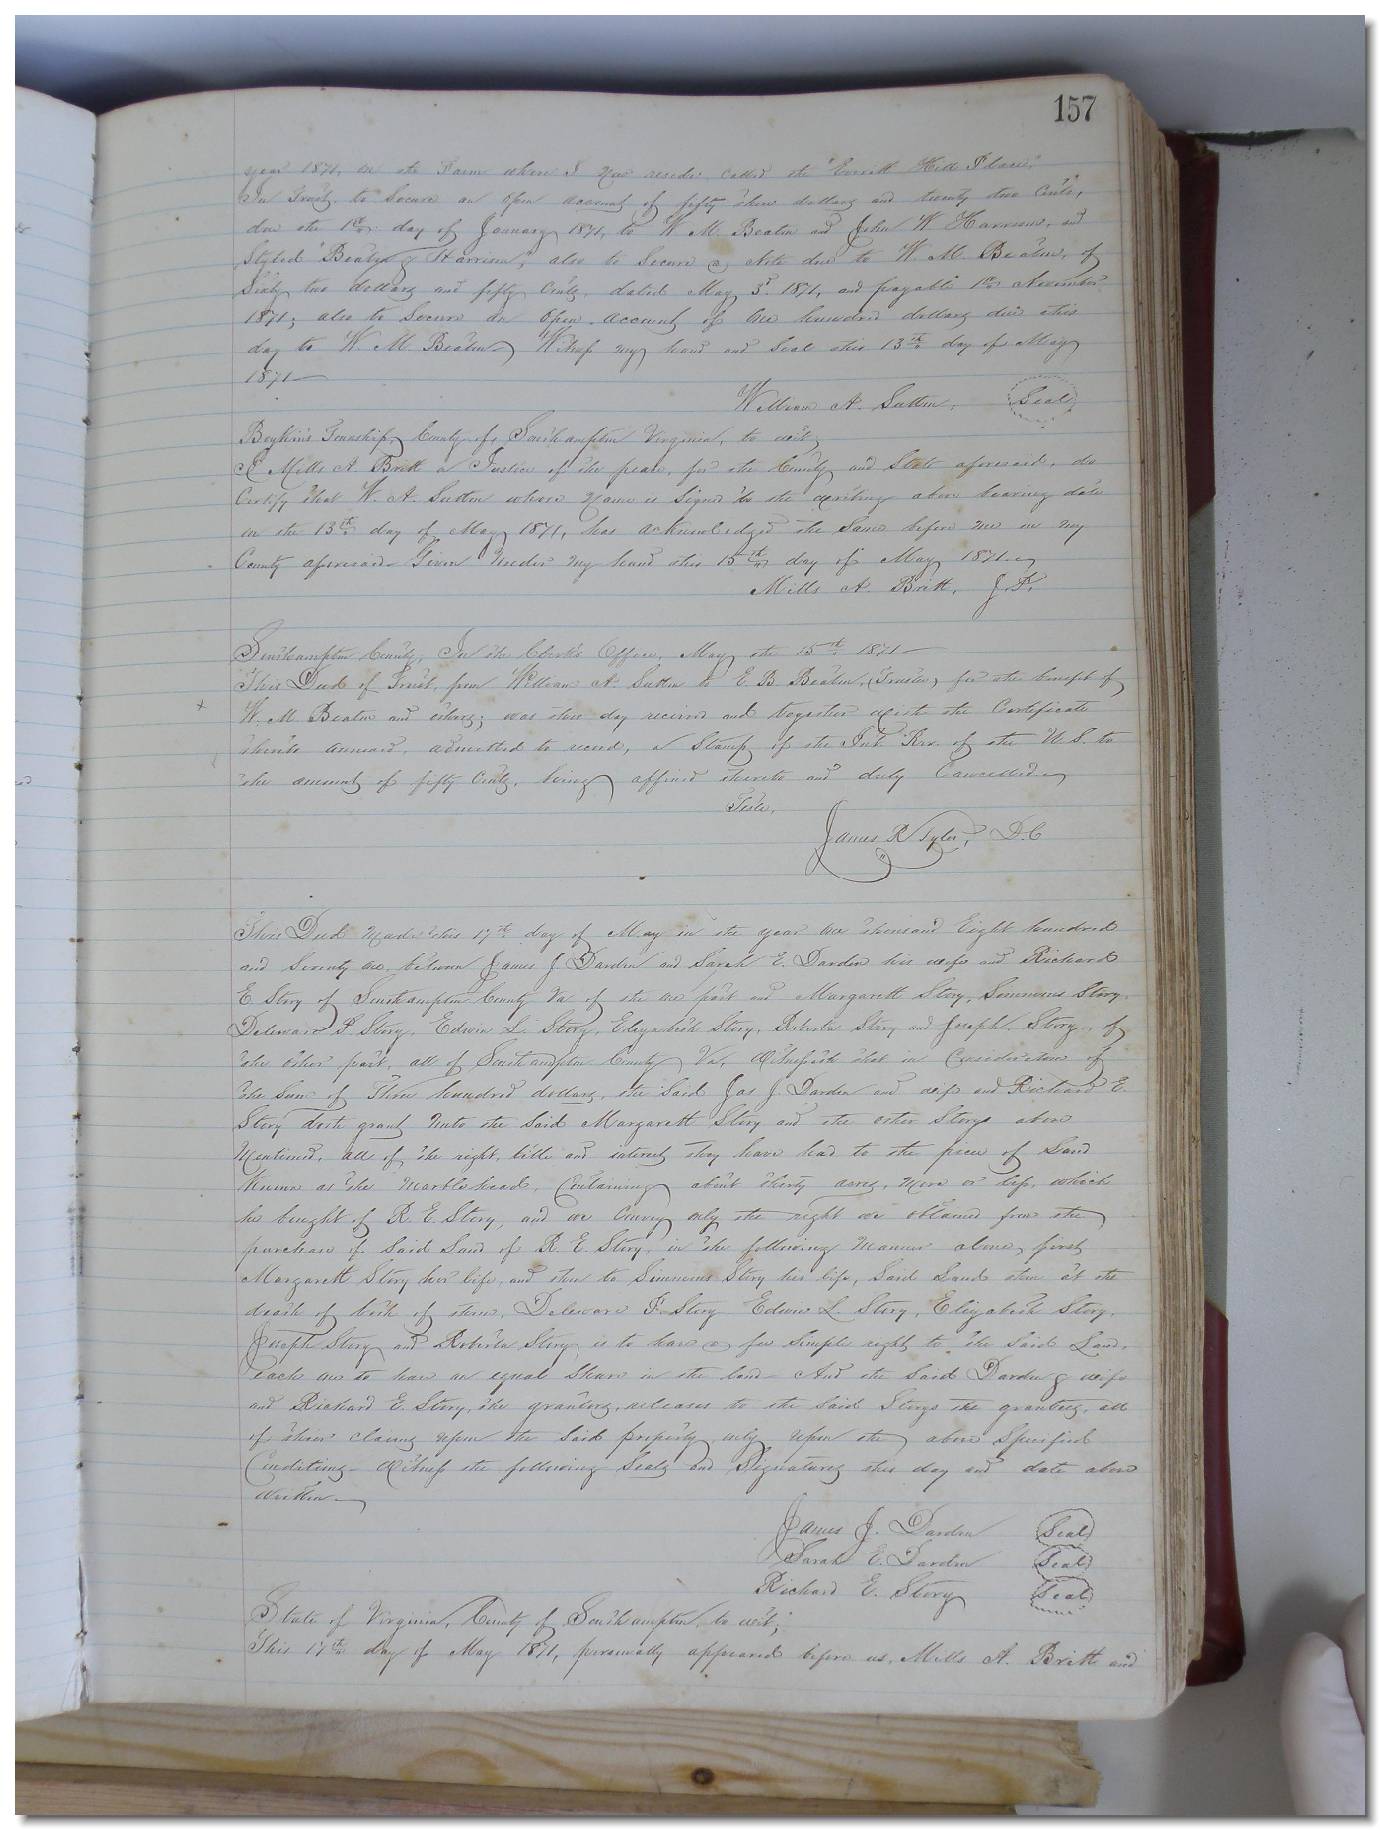 157
year 1871, on the Farm where I now reside called the "Everett Hill Place"
In Trust, to Secure an Open account of fifty three dollars and twenty two Cents,
due the 1st day of January 1871, to W. M. Beaton and John W Harrison, and
Styled "Beaton & Harrison", also to Secure a Note due to W. M. Beaton, of
Sixty two dollars and fifty Cents, dated May 3d 1871, and payable 1st November
1871; also to Secure an Open account of One hundred dollars due this
day to W M. Beaton Witness my hand and Seal this 13th day of May
1871
William A. Sutton, Seal
Boykins Township, County of Southampton Virginia, to wit;
I Mills A. Britt a Justice of the peace, for the County and State aforesaid, do
Certify that W. A. Sutton whose Name is Signed to the writing above bearing date
on the 13th day of May 1871, has acknowledged the Same before me in my
County aforesaid. Given Under my hand this 15th day of May 1871.
Mills A. Britt, J.P.
Southampton County, In the Clerk's Office, May the 15th 1871
This Deed of Trust, from William A. Sutton to E. B Beaton, (Trustee) for the benefit of
W. M Beaton and others; was this day received and together with the Certificate
thereto annexed, admitted to record, a Stamp of the Int. Rev. of the U.S. to
the amount of fifty Cents, being affixed thereto and duly Cancelled.
Teste,
James R Tyler, D.C
This Deed Made this 17th day of May in the year One thousand Eight hundred
and Seventy one, between James J Darden and Sarah E. Darden his wife and Richard
E. Story of Southampton County Va of the one part and Margarett Story, Simmons Story,
Deleware F Story, Edwin L. Story, Elizabeth Story, Roberta Story and Joseph Story, of
the other part, all of Southampton County Va, Witnesseth that in Consideration of
the Sum of Three hundred dollars, the Said Jas J. Darden and wife and Richard E.
Story doth grant Unto the Said Margarett Story and the other Storys above
Mentioned, all of the right, title and interest they have had to the piece of Land
Known as the Marblehead, Containing about thirty acres, more or less, which
he bought of R. E. Story, and we Convey only the right we obtained from the
purchase of Said Land of R. E. Story, in the following Manner above, first
Margarett Story her life, and then to Simmons Story his life, Said Land then at the
death of both of them, Deleware F. Story Edwin L. Story, Elizabeth Story,
Joseph Story and Roberta Story is to have a fee Simple right to the Said Land,
each one to have an equal Share in the land. And the Said Darden & wife
and Richard E. Story, the grantors, releases to the Said Storys the grantees, all
of their claims upon the Said property only upon the above Specified
Conditions. Witness the following Seals and Signatures this day and date above
written
James J. Darden Seal
Sarah E. Darden Seal
Richard E. Story Seal
State of Virginia, County of Southampton, to wit;
This 17th day of May 1871, personally appeared before us, Mills A. Britt and